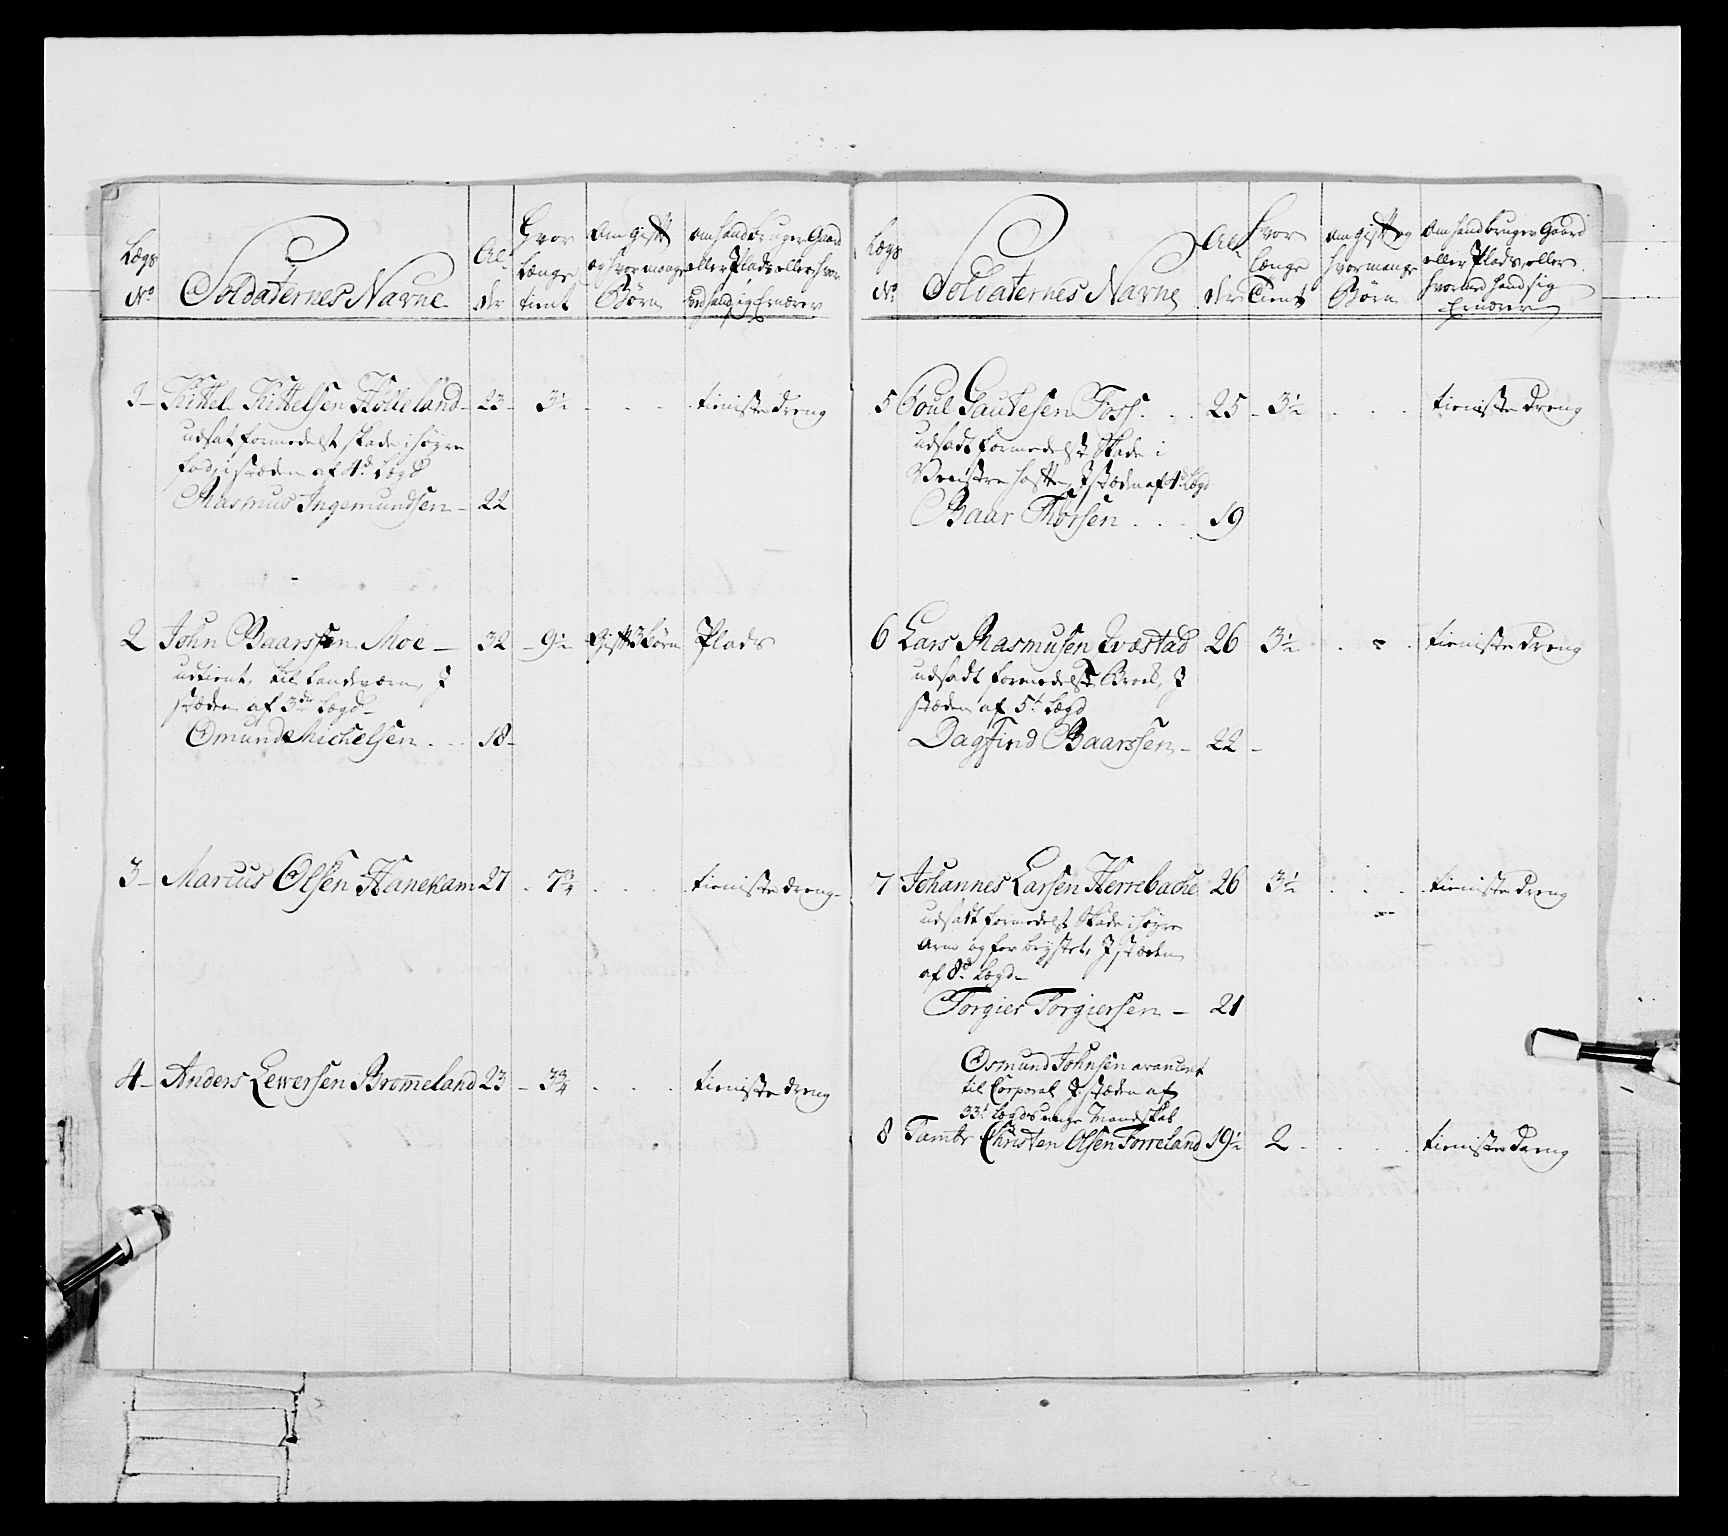 Lægs No
Soldaternes Navne
Alder
Hvor længe tient
Om gift og hvor mange Børn
Om hand bruger Gaard eller Plads eller hvor ved hand sig Ernærer
1 Kittel Kittelsen Hölleland 23 3½ tieniste dreng
udsat formedelst skade i høyre
fod, i stæden af 1d Lægd
Rasmus Ingemundsen 22
2 John Baarssen Moe 32 9½ Gift 3 børn Plads
udtient, til Landværn, I
stæden af 3die Lægd
Omund Michelsen 18
3 Marcus Olsen Hanekam 27 7¾ tieniste dreng
4 Anders Lewersen Bromeland 23 3¾ tieniste dreng
Lægs No
Soldaternes Navne
Alder
Hvor længe Tient
Om gift og hvor mange Børn
Om hand bruger Gaard eller Plads, eller hvorved hand sig Ernærer
5 Poul Gautesen Foss 25 3½ tieniste dreng
udsadt formedelst Skade i
Venstre hofte, I stæden af 1 Lægd
Baar Thorsen 19
6 Lars Rasmusen Qvæstad 26 3½ tieniste dreng
udsadt formedelst Brok, I
stæden af 5t Lægd
Dagfind Baarssen 22
7 Johannes Larsen Herrebache 26 3½ tieniste dreng
udsadt formedelst Skade i høyre
Arm og for brystet, I stæden
af 8d Lægd
Torgier Torgiersen 21
Osmund Johnsen avancert
til Corporal I stæden af
33t Lægds unge Mandskab
8 Tambr Christen Olsen Torreland 19½ 2 tieniste dreng